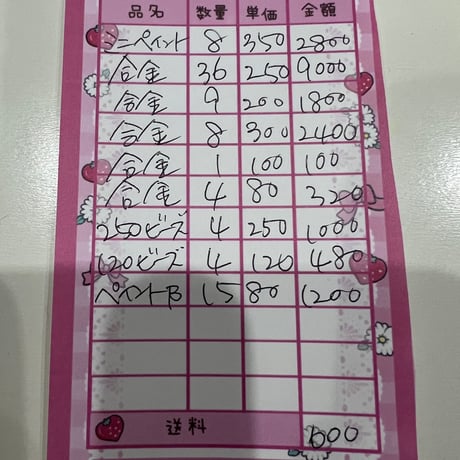 品名 数量 単価 金額
ミニペイント 8 350 2800
合金 36 250 9000
合金 9 200 1800
合金 8 300 2400
合金 1 100 100
合金 4 80 320
250ビーズ 4 250 1000
120ビーズ 4 120 480
ペイントB 15 80 1200
送料 600